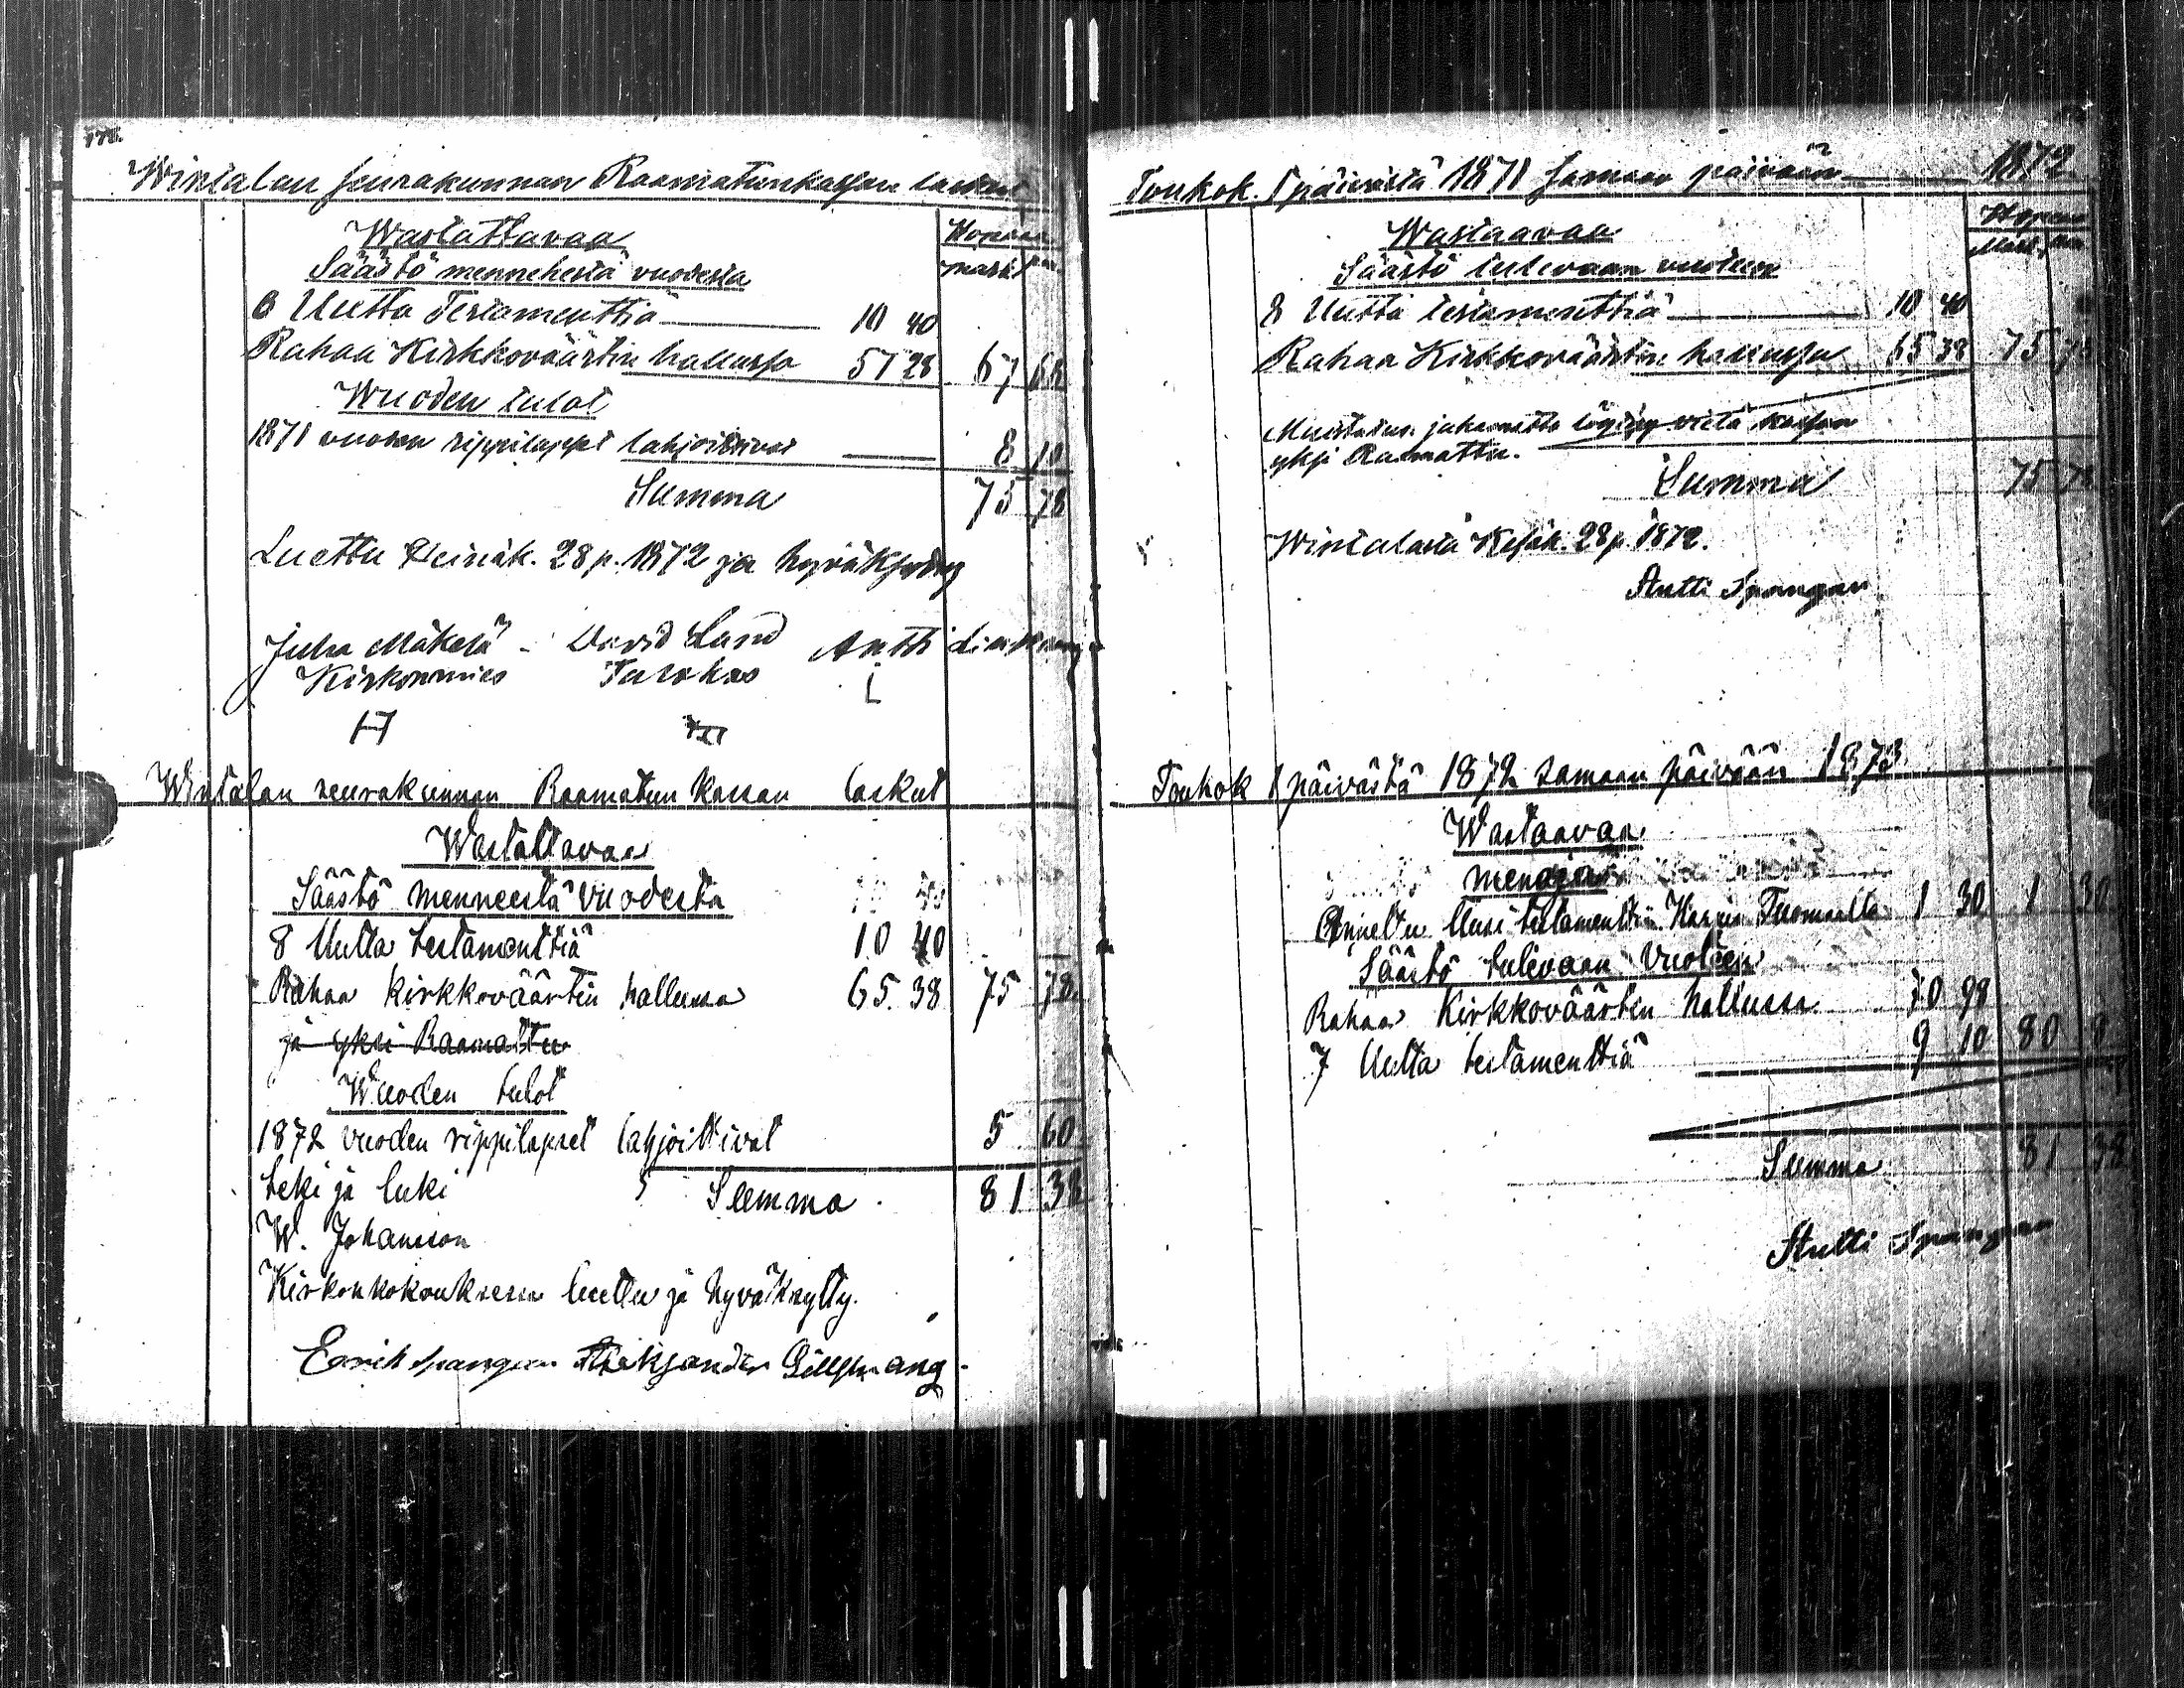 178.
Wirtalan seurakunnan Raamatunkassan laskut
Wastattavaa
Hopeassa
Säästö mennehestä vuodesta
Mark pen
8 Uutta Testamenttia 10 40
Rahaa Kirkkoväärtin hallussa 57 28 67 68
Wuoden tulot
1871 vuoden rippilapset lahjoittivat 8 10
Summa 75 78
Luettu Heinäk. 28 p. 1872 ja hyväksytty
Juha Mäkelä - David Lund Antti
Kirkonmies
Wirtalan seurakunnan Raamatun kassan laskut
Wastattavaa
Säästö menneestä vuodesta
8 Uutta testamenttia 10 40
Rahaa kirkkoväärtin hallussa 65 38 75 78
ja yksi Raamattu
Wuoden tulot
1872 vuoden rippilapset lahjoittivat 5 60
Teki ja luki Summa 81 38
W. Johansson
Kirkonkokouksessa luettu ja hyväksytty.
Eerich Spangeen Aleksander
Toukok. 1 päivästä 1871 samaan päivään 1872
Wastaavaa
Säästö tulevaan vuoteen
8 Uutta testamenttia 10 40
Rahaa Kirkkoväärtin hallussa 65 38 75 78
Muistutus: löytyy vielä kassan
yksi Raamattu.
Summa 75 78
Wirtalasta Kesäk. 28 p. 1872.
Antti Spangeen
Toukok 1 päivästä 1872 samaan päivään 1873
Wastaavaa
menoja
Annettu Uusi testamentti Tuomaalta 1 30 1 30
Säästö tulevaan vuoteen
Rahaa Kirkkoväärtin hallussa 70 98
7 Uutta testamenttia 9 10 80 08
Summa 81 38
Antti Spangeen